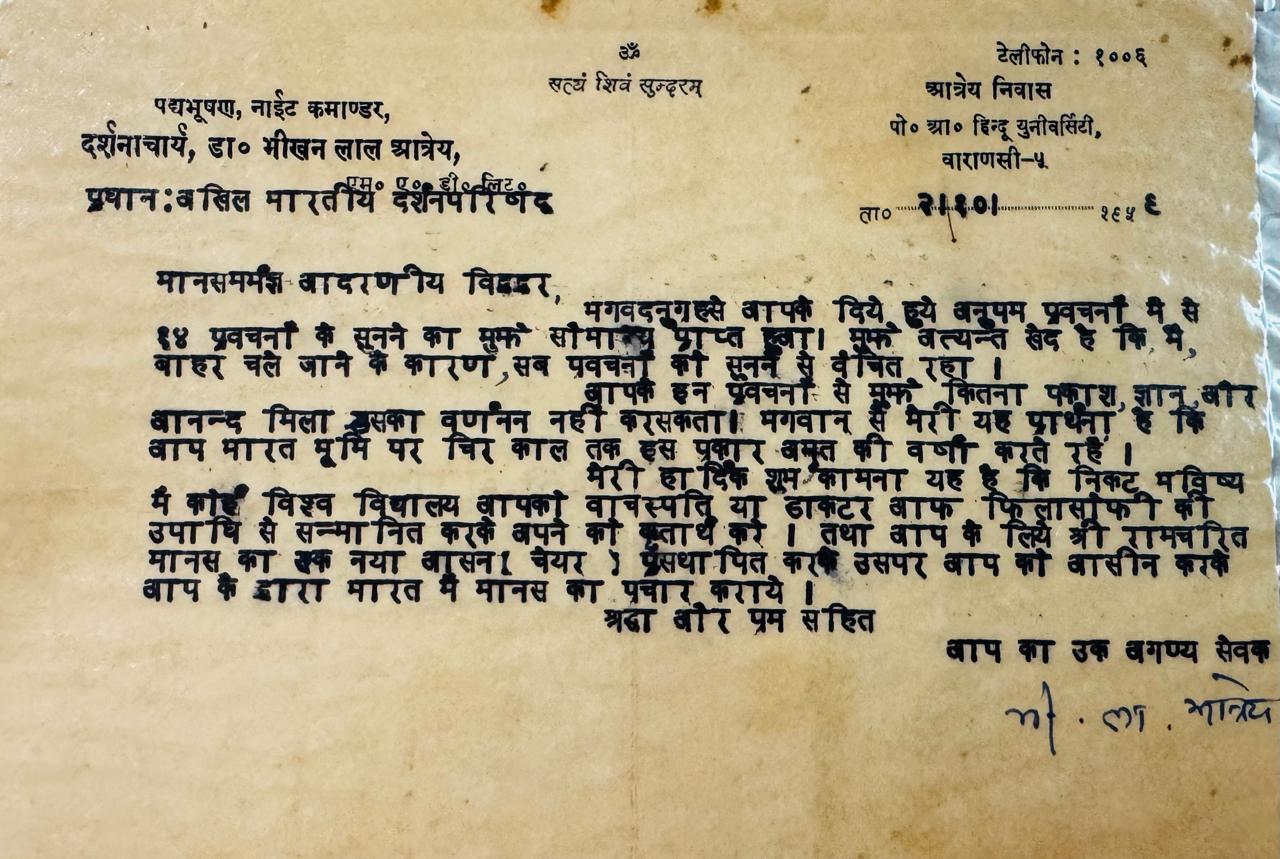 ॐ
सत्यं शिवं सुन्दरम्
टेलीफोन : १००६
आत्रेय निवास
पो० आ० हिन्दू युनीवर्सिटी,
वाराणसी–५
पद्मभूषण, नाईट कमाण्डर,
दर्शनाचार्य, डा० भीखन लाल आत्रेय,
एम० ए० डी० लिट०
प्रधान:अखिल भारतीय दर्शनपरिषद
ता० २।१०। १९५६
मानसमर्मज्ञ आदरणीय विद्वदर,
भगवदनुग्रहसे आपके दिये हुये अनुपम प्रवचनों मे से
१४ प्रवचनों के सुनने का मुझे सौभाग्य प्राप्त हुआ। मुझे अत्यन्त खेद है कि, मै,
बाहर चले जाने के कारण ,सब प्रवचनों को सुनने से वंचित रहा ।
आपके इन प्रवचनों से मुझे कितना प्रकाश, ज्ञान, और
आनन्द मिला उसका वर्णनन नहीं करसकता। भगवान् से मेरी यह प्रार्थना है कि
आप भारत भूमि पर चिर काल तक इस प्रकार अमृत की वर्षा करते रहें ।
मेरी हार्दिक शुभ कामना यह है कि निकट भविष्य
मे कोई विश्व विद्यालय आपको वाचस्पति या डाक्टर आफ फिलासोफी की
उपाधि से सन्मानित करके अपने को कृतार्थ करे । तथा आप के लिये श्री रामचरित
मानस का एक नया आसन( चेयर ) प्रसथापित करके उसपर आप को आसीन करके
आप के द्वारा भारत मे मानस का प्रचार कराये ।
श्रद्धा और प्रेम सहित
आप का उक अगण्य सेवक
भी . ला . आत्रेय